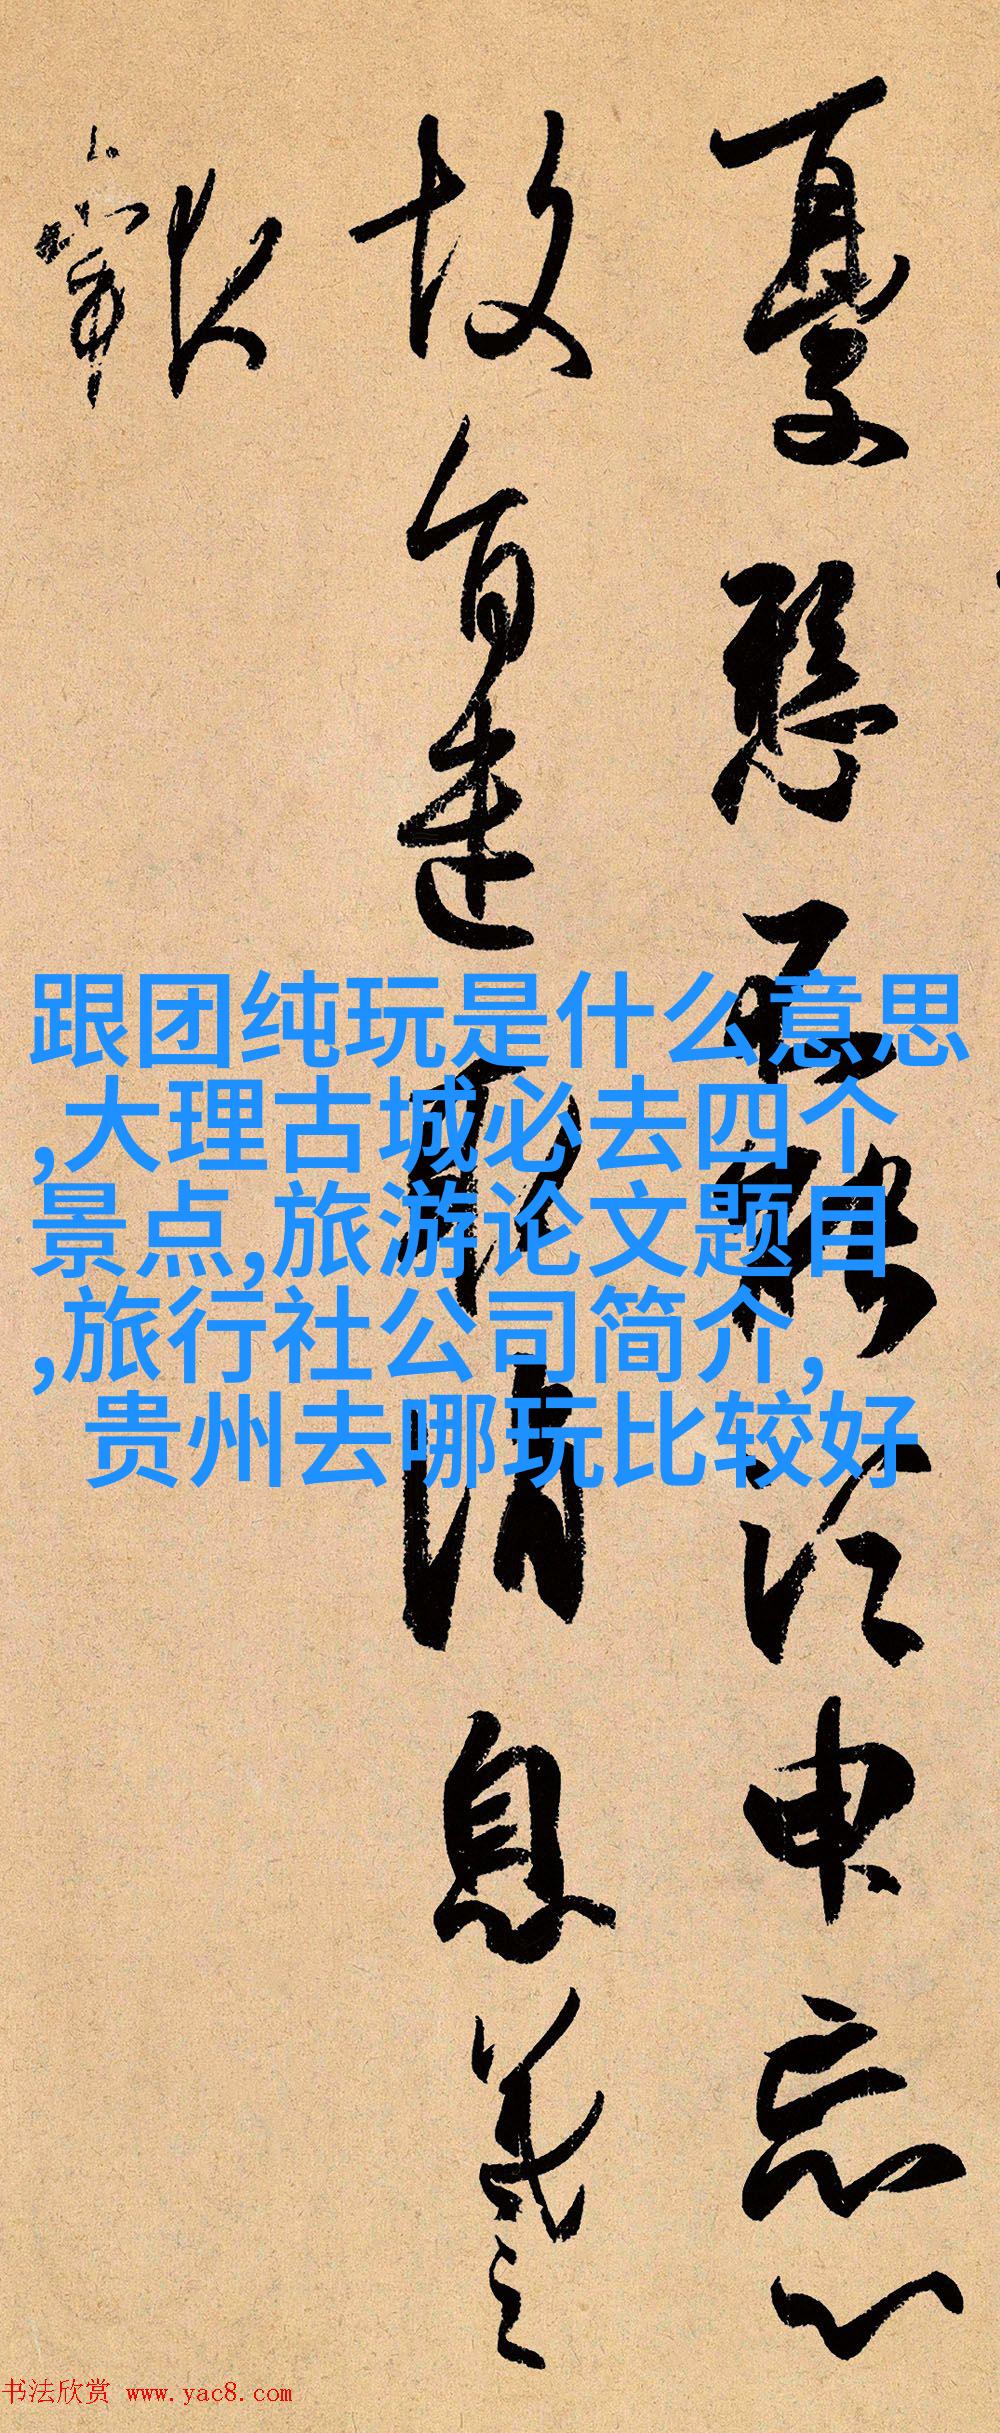 憂懸不能須申忘心
故旨遣取消息羲之
報
跟团纯玩是什么意思
,大理古城必去四个
景点,旅游论文题目
,旅行社公司简介,
贵州去哪玩比较好
书法欣赏 www.yac8.com